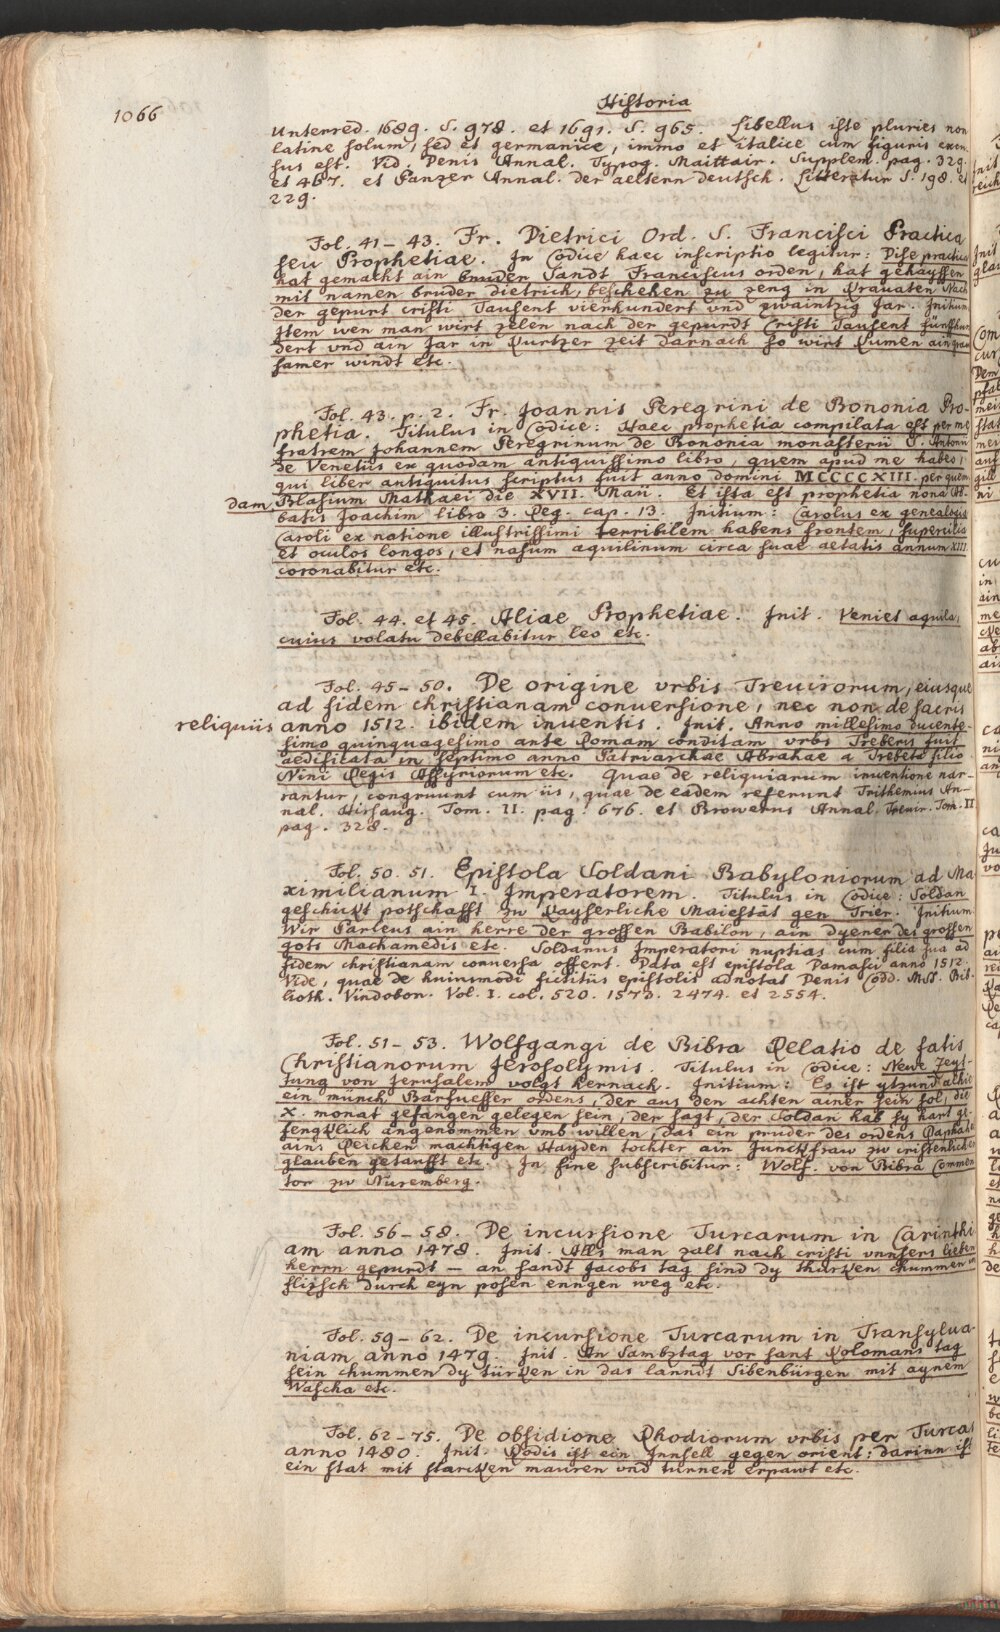 1066
Historia
Unterred. 1689. S. 978. et 1691. S. 965. Libellus iste pluries non
latine solum, sed et germanice, immo et italice cum figuris excu-
sus est. Vid. Denis Annal. Typog. Maittair. Supplem. pag. 329.
et 467. et Panzer Annal. der aeltern deutsch. Litteratur S. 198. et
229.
Fol. 41–43. Fr. Dietrici Ord. S. Francisci Practica
seu Prophetiae. In Codice haec inscriptio legitur: Dise practica
hat gemacht ain bruder Sandt Franciscus orden, hat gehayssen
mit namen bruder dietrich, beschehen zu zeng in Krauaten Nach
der gepurt cristi Tausent vierhundert vnd zwaintzig Jar. Initium
Item wen man wirt zelen nach der gepurdt Cristi Tausent fünfhun
dert vnd ain Jar in Kurtzer zeit darnach so wirt Kumen ain grau
samer windt etc.
Fol. 43. p. 2. Fr. Joannis Peregrini de Bononia Pro-
phetia. Titulus in Codice: Haec prophetia compilata est per me
fratrem Johannem Peregrinum de Bononia monasterii S. Antonii
de Venetiis ex quodam antiquissimo libro, quem apud me habeo,
qui liber antiquitus scriptus fuit anno domini MCCCCXIII. per quen
dam Blasium Mathaei die XVII. Man. Et ista est prophetia nona Ab-
batis Joachim libro 3. Reg. cap. 13. Initium: Carolus ex genealogia
Caroli ex natione illustrissimi terribilem habens frontem, supercilia
et oculos longos, et nasum aquilinum circa suae aetatis annum XIII.
coronabitur etc.
Fol. 44. et 45. Aliae Prophetiae. Init. Veniet aquila,
cuius volatu debellabitur leo etc.
Fol. 45–50. De origine vrbis Treuirorum, eiusque
ad fidem christianam conuersione, nec non de sacris
reliquiis anno 1512. ibidem inuentis. Init. Anno millesimo ducente-
simo quinquagesimo ante Romam conditam vrbs Treberis fuit
aedificata in septimo anno Patriarchae Abrahae a Trebeta filio
Nini Regis Assyriorum etc. Quae de reliquiarum inuentione nar-
rantur, congruunt cum iis, quae de eadem referunt Trithemius An-
nal. Hirsaug. Tom. II. pag. 676. et Browerus Annal. Treuir. Tom. II
pag. 328.
Fol. 50. 51. Epistola Soldani Babyloniorum ad Ma
ximilianum I. Imperatorem. Titulus in Codice: Soldan
geschickt potschafft zu Kayserliche Maiestät gen Trier. Initium
Wir Parleus ain herre der grossen Babilon, ain dyener des grossen
gots Machamedis etc. Soldanus Imperatori nuptias cum filia sua ad
fidem christianam conuersa offert. Data est epistola Damasci anno 1512.
Vide, quae de huiusmodi fictitiis epistolis adnotat Denis Codd. MSS. Bib-
lioth. Vindobon. Vol. I. col. 520. 1573. 2474. et 2554.
Fol. 51–53. Wolfgangi de Bibra Relatio de fatis
Christianorum Jerosolymis. Titulus in Codice: Newe Zeyt-
tung von Jerusalem volgt hernach. Initium: Es ist ytzund alhie
ein münch Barfuesser ordens, der aus den achten ainer sein sol, die
X. monat gefangen gelegen sein, der sagt, der Soldan hab sy hart ge-
fengklich angenommen vmb willen, das ein pruder des ordens Raphael
ains Reichen machtigen Hayden tochter ain Junckfraw zu cristenlichen
glauben getaufft etc. In fine subscribitur: Wolf. von Bibra Commen
tor zu Nuremberg.
Fol. 56–58. De incursione Turcarum in Carinthi
am anno 1478. Init. Alls man zalt nach cristi vnnsers lieben
herrn gepurdt – an sandt Jacobs tag sind dy thurken chummen in
flizsch durch eyn posen enngen weg etc.
Fol. 59–62. De incursione Turcarum in Transylua-
niam anno 1479. Init. An Sambztag vor sant Kolomans tag
sein chummen dy türken in das lanndt Sibenbürgen mit aynem
Wascha etc.
Fol. 62–75. De obsidione Rhodiorum vrbis per Turcas
anno 1480. Init. Rodis ist ein Innsell gegen orient: darinn ist
ein stat mit starcken mauren vnd turnen erpawt etc.